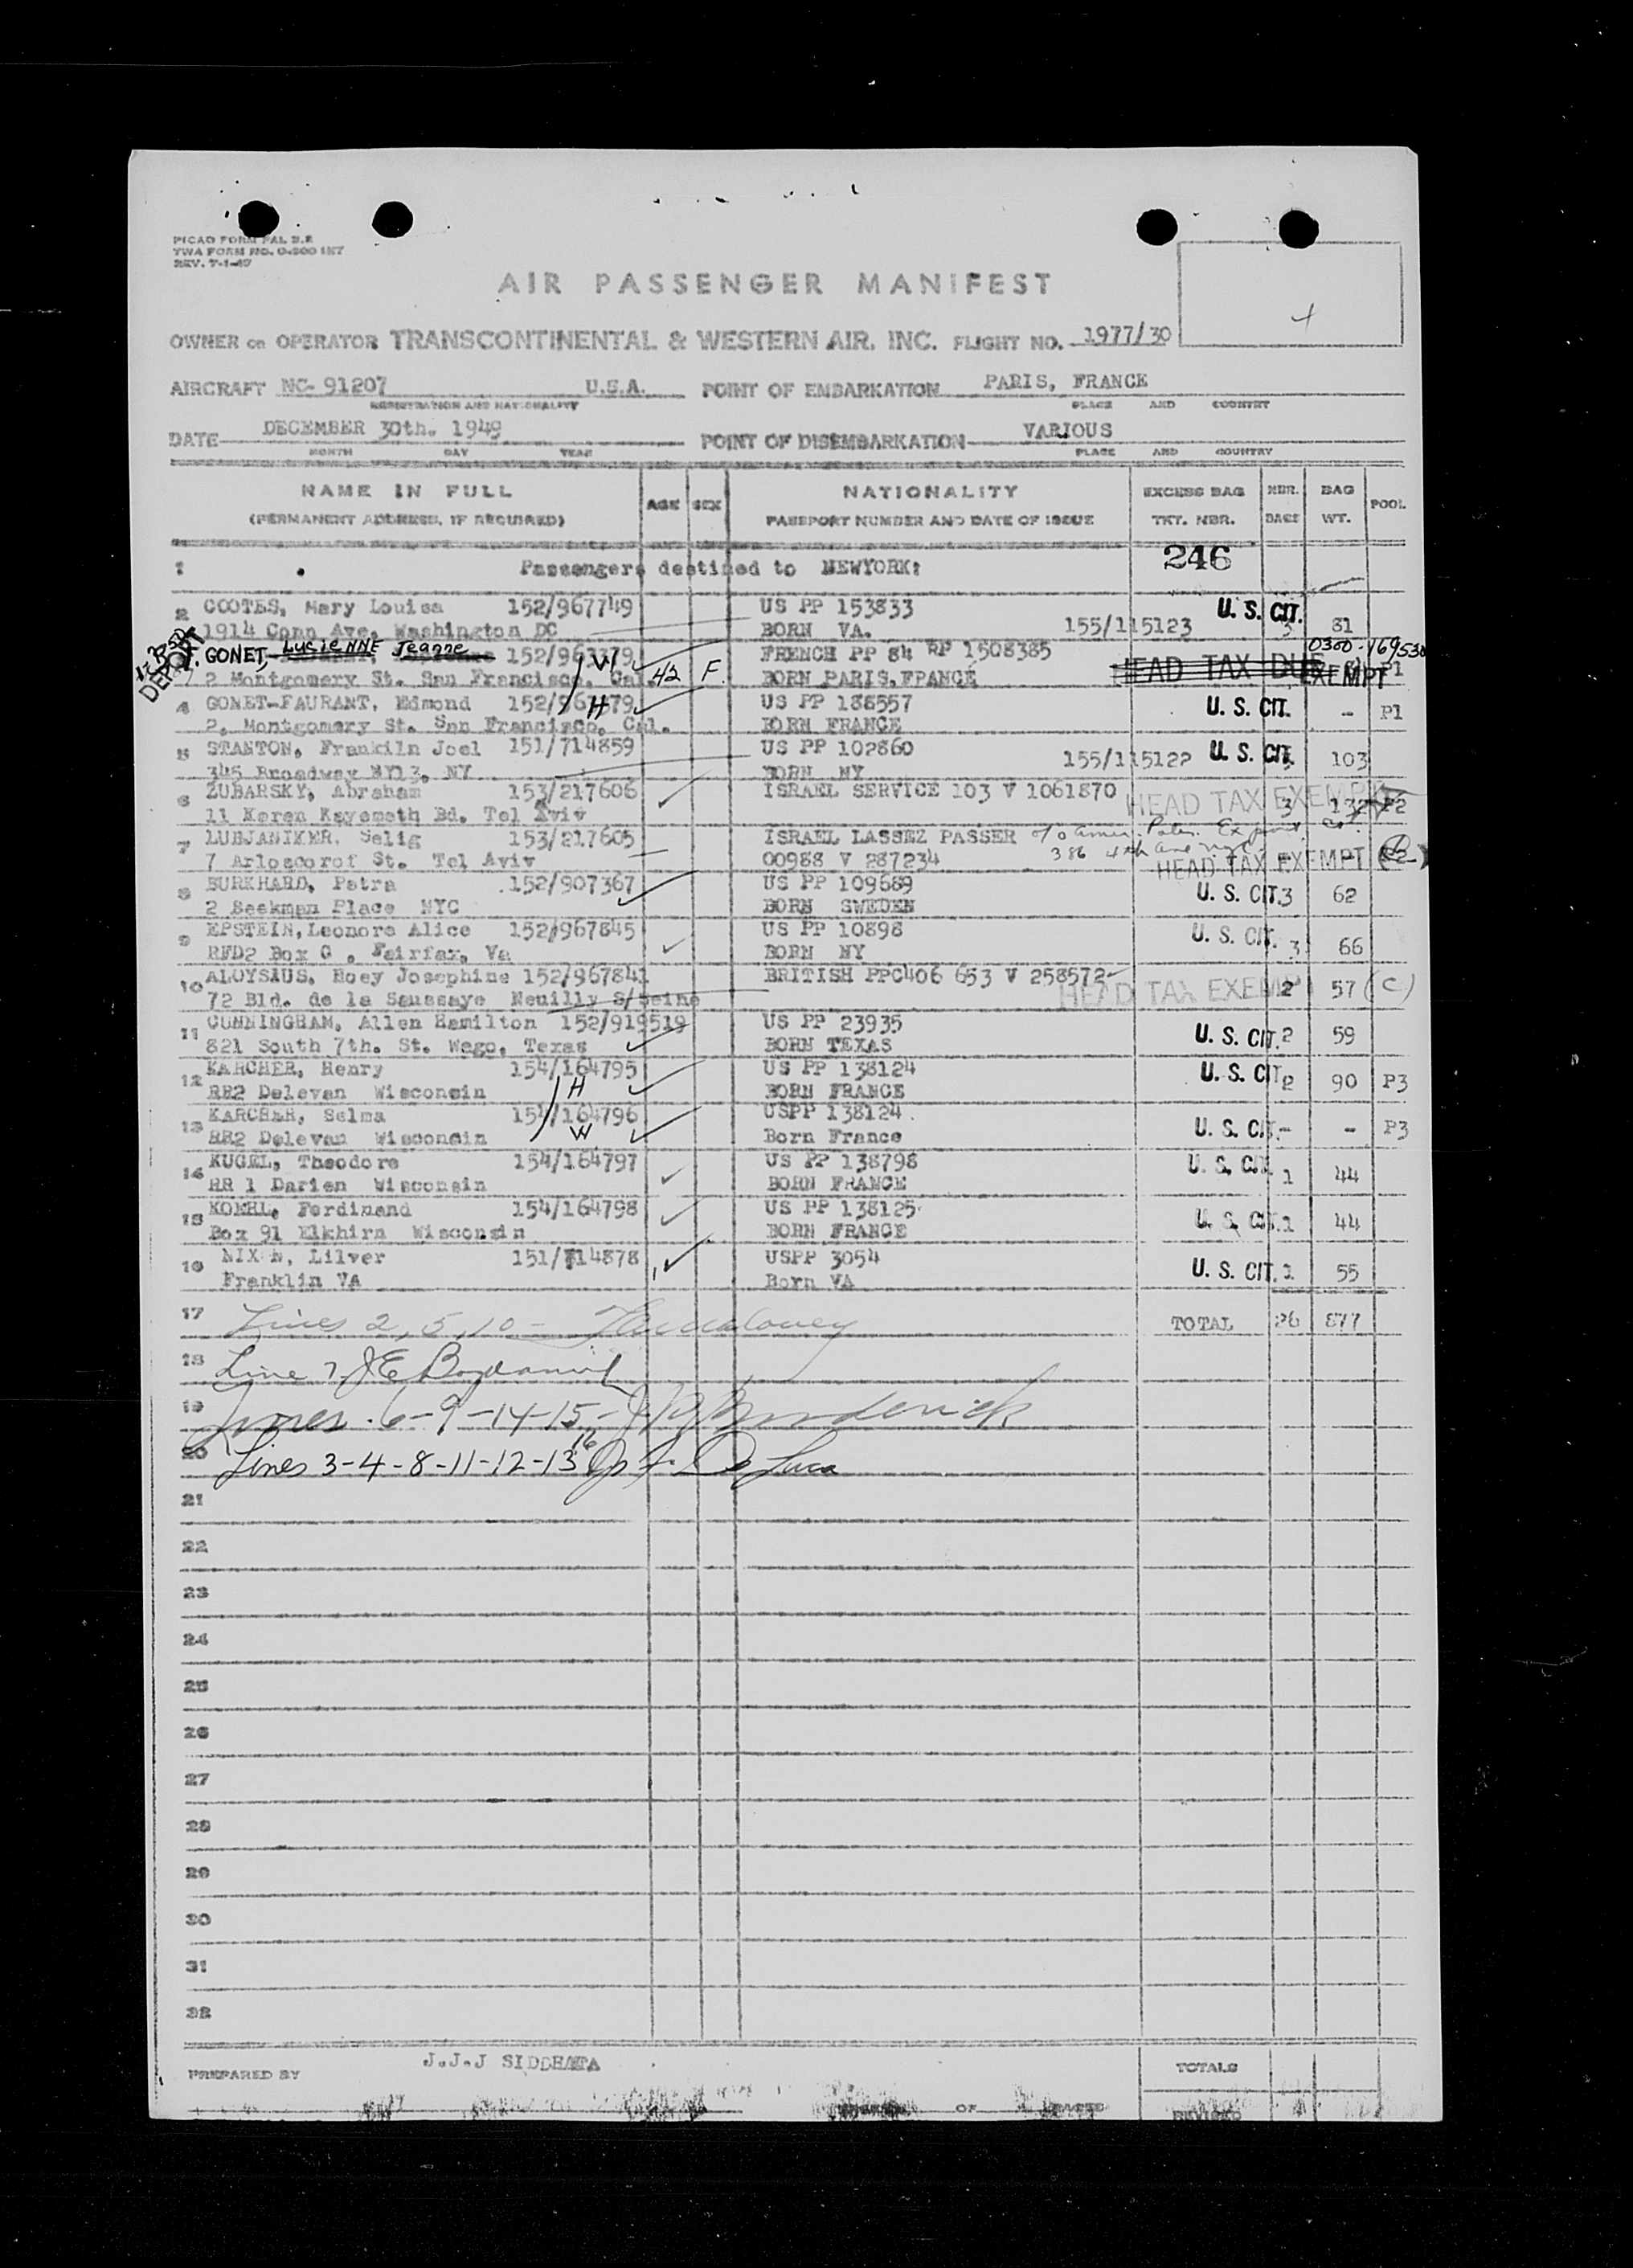 PICAO FORM PAL 2.2
TWA FORM NO. O-200 INT
REV. 7-1-47
AIR PASSENGER MANIFEST
OWNER OR OPERATOR TRANSCONTINENTAL & WESTERN AIR, INC. FLIGHT NO. 1977/30
AIRCRAFT NC-91207 U.S.A. POINT OF EMBARKATION PARIS, FRANCE
REGISTRATION AND NATIONALITY PLACE AND COUNTRY
DATE DECEMBER 30th. 1949 POINT OF DISEMBARKATION VARIOUS
MONTH DAY YEAR PLACE AND COUNTRY
NAME IN FULL AGE SEX NATIONALITY EXCESS BAG NBR. BAG POOL
(PERMANENT ADDRESS, IF REQUIRED) PASSPORT NUMBER AND DATE OF ISSUE TKT. NBR. BAGS WT.
1 Passengers destined to NEWYORK: 246
2 COOTES, Mary Louisa 152/967749 US PP 153833 U. S. CIT.
1914 Conn Ave. Washington DC BORN VA. 155/115123 3 81
DEPORT GONET, Lucienne Jeanne 152/963379 W FRENCH PP 84 RP 1508385 0300-169530
2 Montgomery St. San Francisco, Cal. 42 F. BORN PARIS, FRANCE HEAD TAX DUE EXEMPT P1
4 GONET-FAURANT, Edmond 152/963379 H US PP 188557 U. S. CIT. - P1
2, Montgomery St. San Francisco, Cal. BORN FRANCE
5 STANTON, Frankiln Joel 151/714859 US PP 102860 155/115122 U. S. CIT. 103
345 Broadway NY13, NY BORN NY
6 ZUBARSKY, Abraham 153/217606 ISRAEL SERVICE 103 V 1061870 HEAD TAX EXEMPT 3 132 P2
11 Keren Kayemeth Bd. Tel Aviv
7 LUBJANIKER, Selig 153/217605 ISRAEL LASSEZ PASSER c/o Amer. Export
7 Arlosoorof St. Tel Aviv 00988 V 287234 386 4th Ave HEAD TAX EXEMPT
8 BURKHARD, Petra 152/907367 US PP 109689 U. S. CIT. 3 62
2 Beekman Place NYC BORN SWEDEN
9 EPSTEIN, Leonore Alice 152/967845 US PP 10898 U. S. CIT. 3 66
RFD2 Box G . Fairfax, Va BORN NY
10 ALOYSIUS, Hoey Josephine 152/967841 BRITISH PPC406 653 V 258572 HEAD TAX EXEMPT 2 57 (C)
72 Bld. de la Saussaye Neuilly S/Seine
11 CUNNINGHAM, Allen Hamilton 152/919519 US PP 23935 U. S. CIT. 2 59
821 South 7th. St. Wego, Texas BORN TEXAS
12 KARCHER, Henry 154/164795 US PP 138124 U. S. CIT 2 90 P3
RR2 Delevan Wisconsin H BORN FRANCE
13 KARCHER, Selma 154/164796 USPP 138124 U. S. CIT. - - P3
RR2 Delevan Wisconsin W Born France
14 KUGEL, Theodore 154/164797 US PP 138798 U. S. CIT. 1 44
RR 1 Darien Wisconsin BORN FRANCE
15 KOEHL, Ferdinand 154/164798 US PP 138125 U. S. CIT. 1 44
Box 91 Elkhirn Wisconsin BORN FRANCE
16 NIXON, Lilver 151/714878 USPP 3054 U. S. CIT. 1 55
Franklin VA Born VA
17 Lines 2, 5, 10 - TOTAL 26 877
18 Line 7 J E
19 Lines 6-9-14-15- Broderick
20 Lines 3-4-8-11-12-13 16 De Luca
21
22
23
24
25
26
27
28
29
30
31
32
PREPARED BY J.J.J SIDDHARTA TOTALS
OF PAGES REVISED